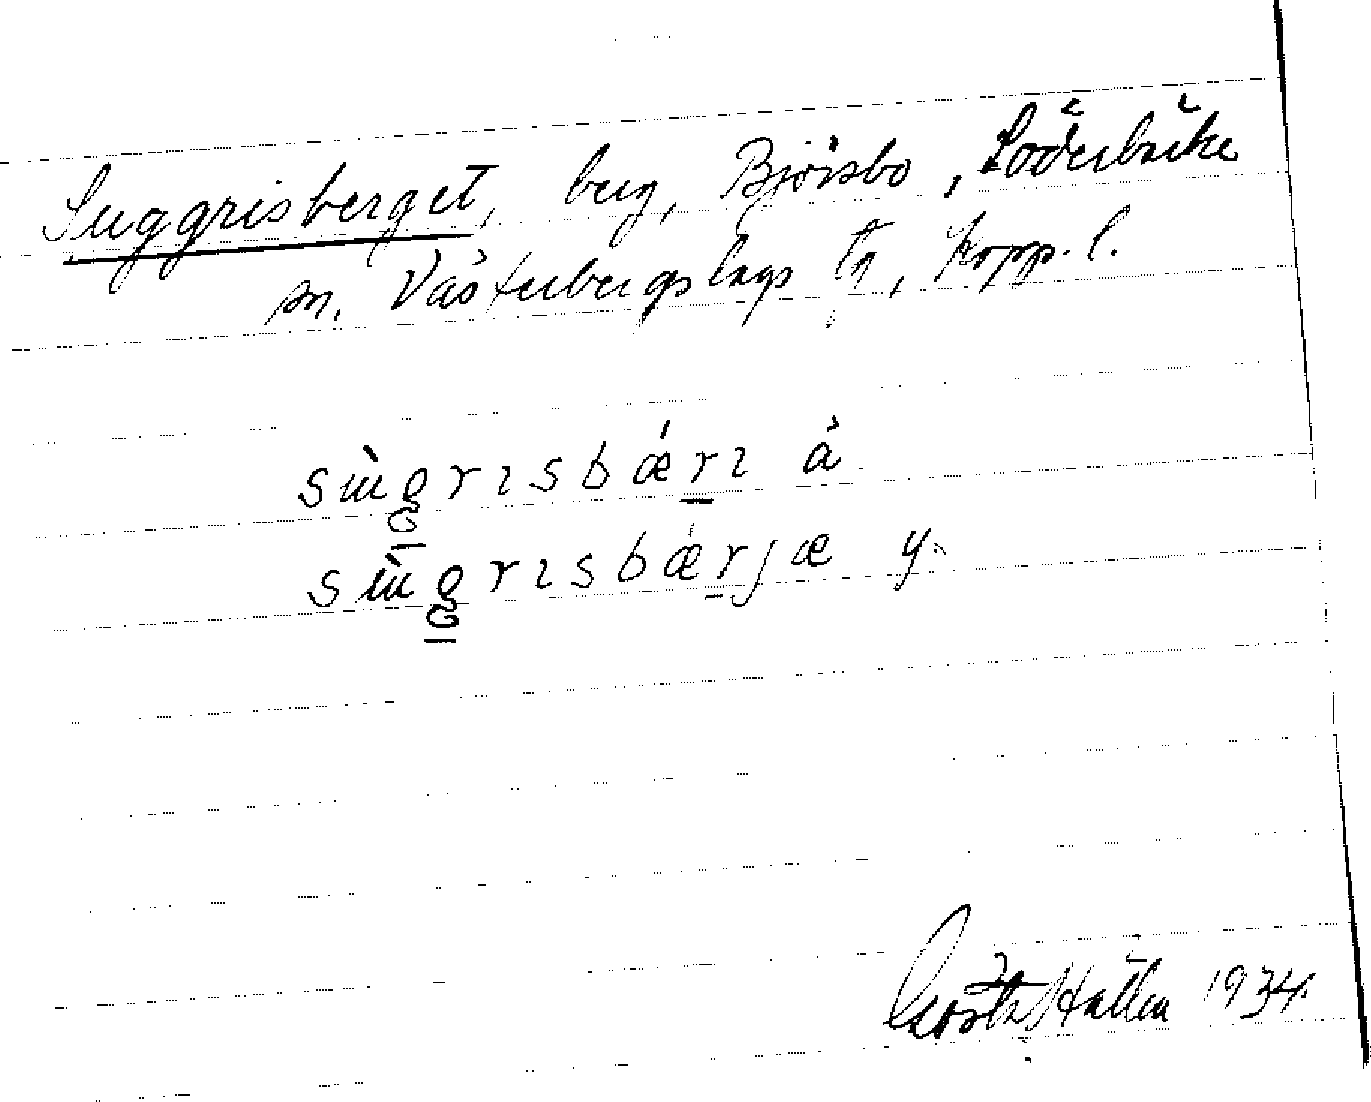 Suggrisberget, berg, Björsbo, Söderbärke
sn. Västerbergslags tg, Kopp. l.
sùgrɪsbǽrɪ ä
sùgrɪsbǽrjæ y.
Gösta Hallen 1934.